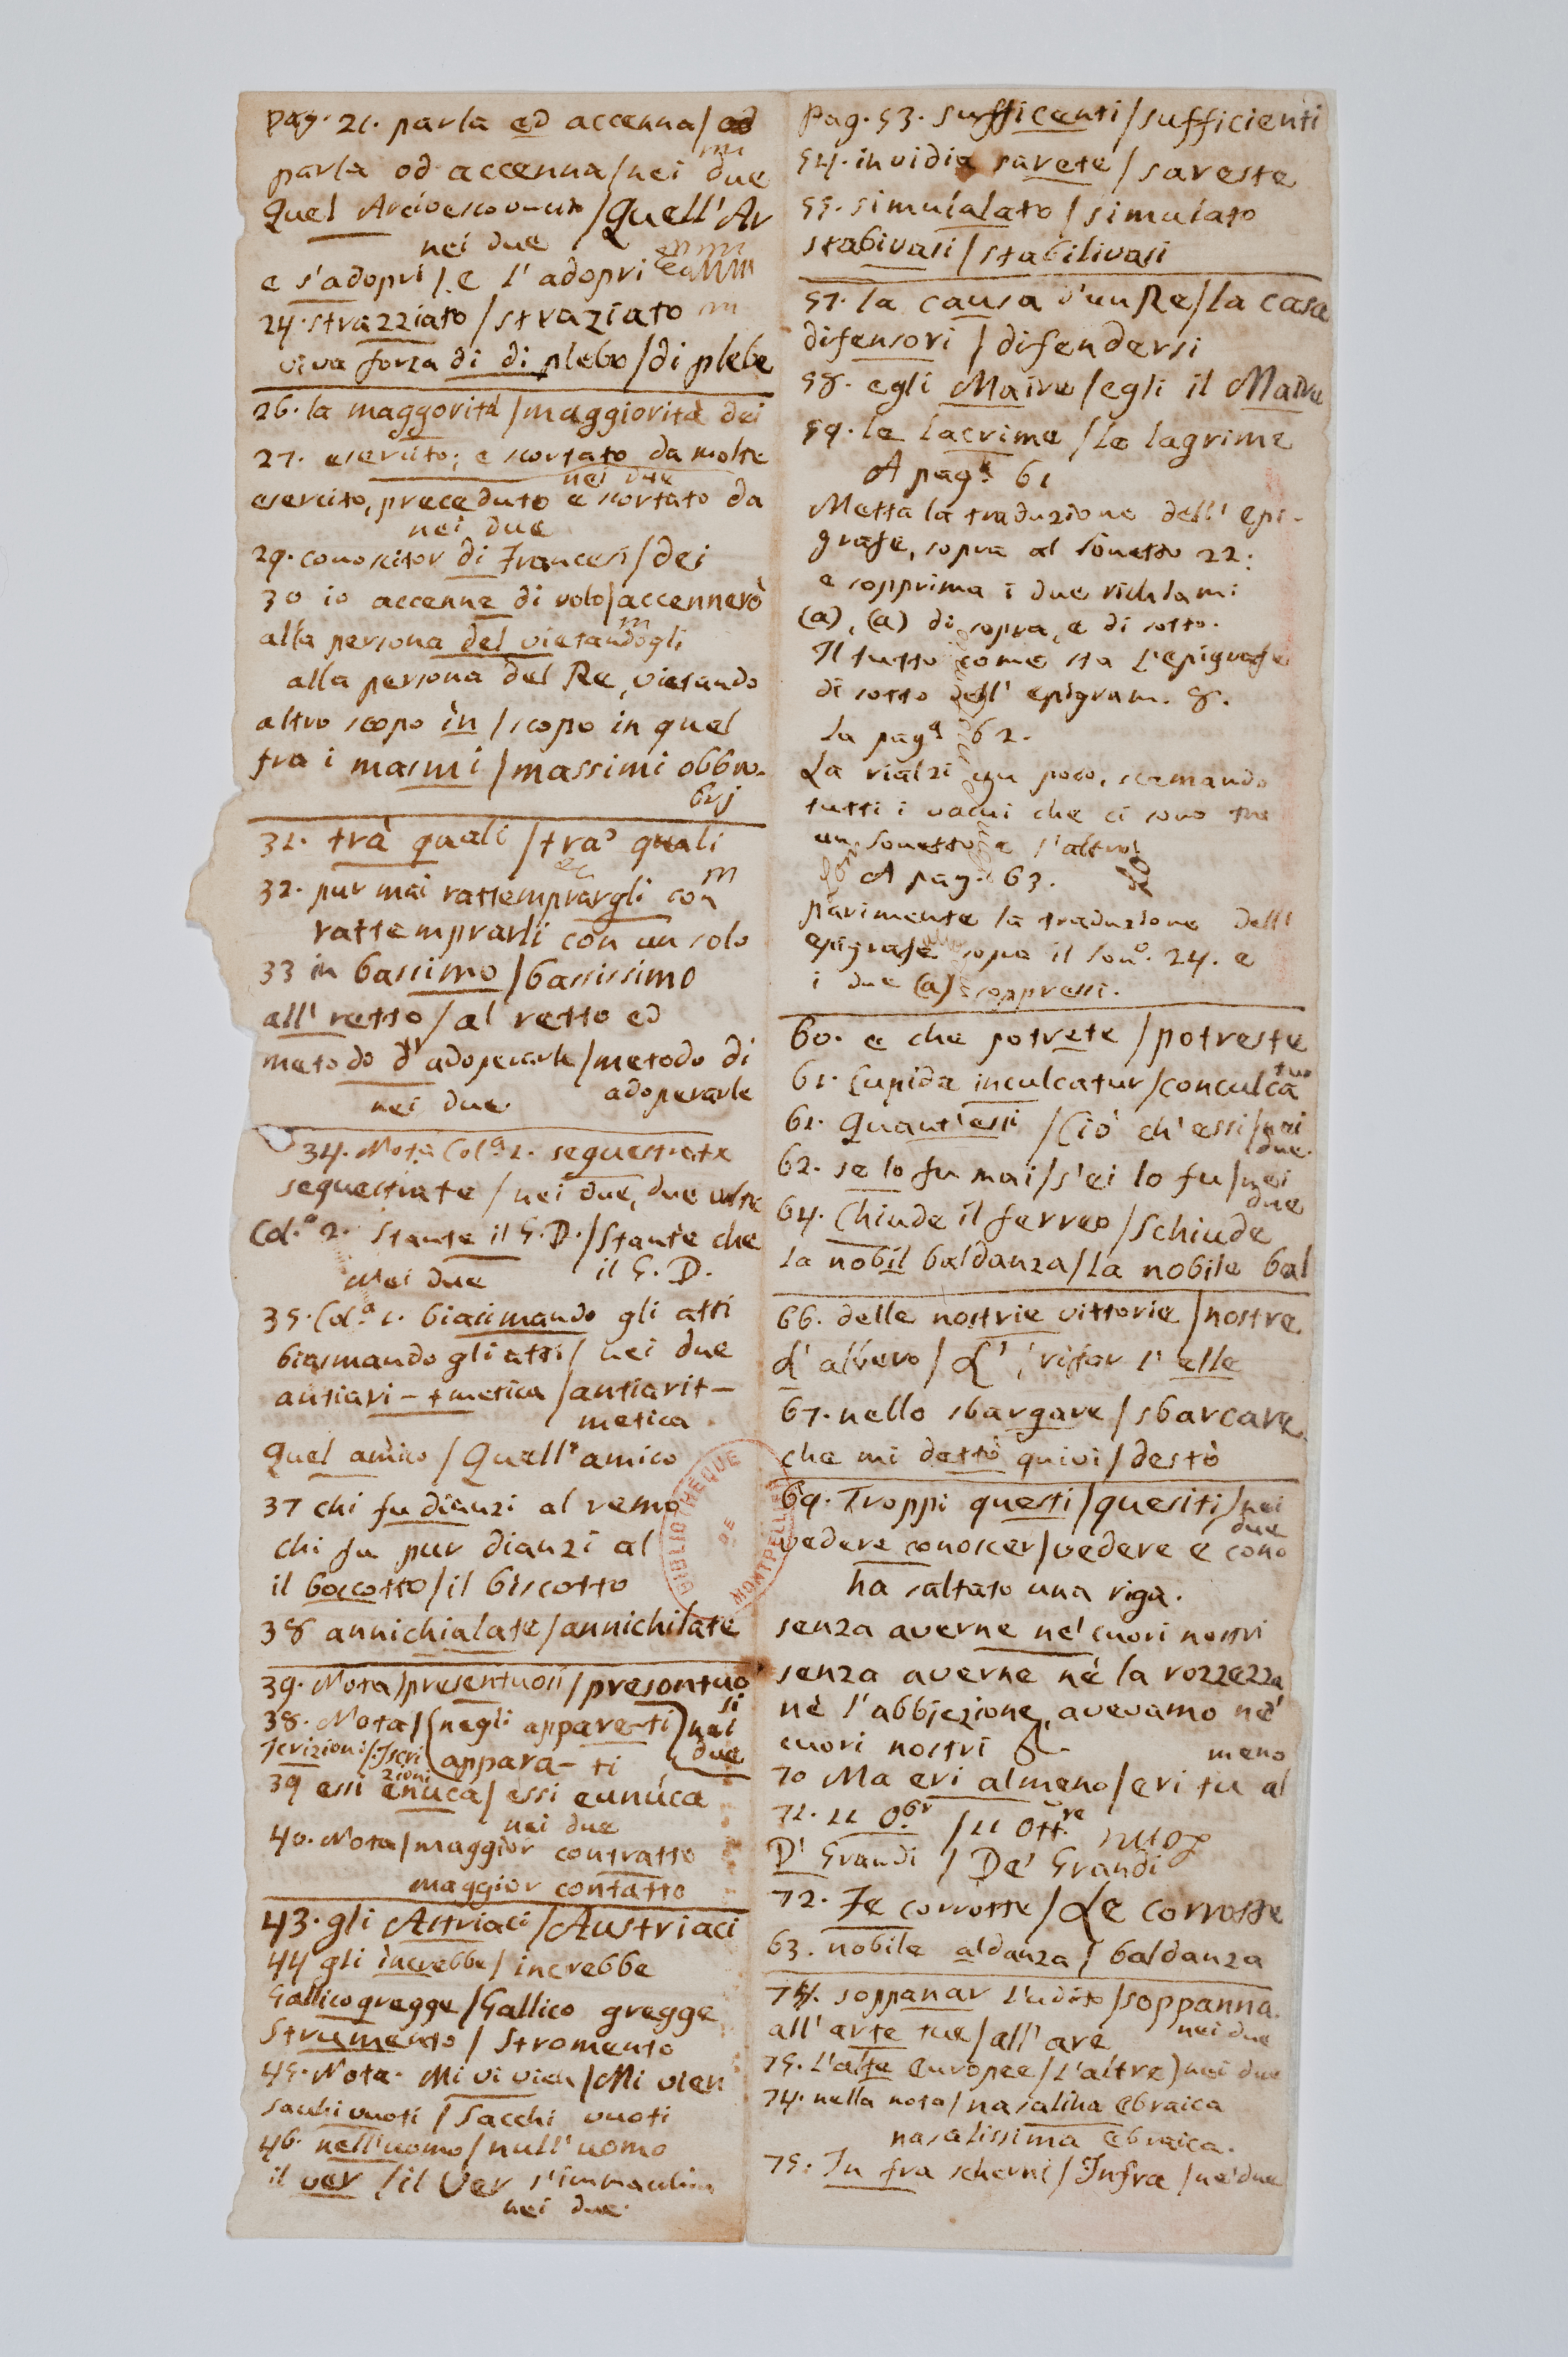 pag. 21. parla ed accenna/od
parla od accenna/nei due
Quel Arcivescovucito/Quell'Ar
nei due
e s'adopri/e l'adopri
24. strazziato/straziato
viva forza di di plebe/di plebe
26. la maggorità/maggiorità dei
27. esercito; e scortato da molte
nei due
esercito, preceduto e scortato da
nei due
29. conoscitor di Francesi/dei
30 io accenne di volo/accennerò
alla persona del vietandogli
alla persona del Re, vietando
altro scopo in/scopo in quel
fra i masmi/massimi obbro-
brj
31. trà quali/tra' quali
32. pur mai rattemprargli con
rattemprarli con un solo
33 in bassimo/bassissimo
all' retto/al retto ed
metodo d'adoperarle/metodo di
nei due adoperarle
34. Nota Col.ª 1. sequestrate
sequestrate/nei due, due volte
Col.ª 2. Stante il G.D./Stante che
Nei due il G.D.
35. Col.ª 1. biasimando gli atti
biasmando gli atti/nei due
antiari-tmetica/antiarit-
metica.
Quel amico/Quell'amico
37 chi fu dianzi al remo
chi fu pur dianzi al
il boccotto/il biscotto
38 annichialate/annichilate
39. Nota/presentuosi/presontuo
si
38. Nota/(negli appare-ti) nei
Icrizioni/Iscri appara-ti due
zioni
39 essi enúca/essi eunúca
nei due
40. Nota/maggior contratto
maggior contatto
43. gli Astriaci/Austriaci
44 gli increbbe/increbbe
Gallicogregge/Gallico gregge
Strumento/Stromento
45. Nota. Mi vi vien/Mi vien
sachi vuoti/Sacchi vuoti
46. nell'uomo/null'uomo
il ver/il Ver s'immaculin
nei due.
Pag. 53. sufficenti/sufficienti
54. invidia sarete/sareste
55. simulalato/simulato
stabivasi/stabilivasi
57. la causa d'un Re/la casa
difensori/difendersi
58. egli Maire/egli il Maire
59. le lacrime/le lagrime
A pag.ª 61
Metta la traduzione dell'epi-
grafe, sopra al Sonetto 22:
e sopprima i due richiami
(a), (a) di sopra, e di sotto.
Il tutto come sta l'epigrafe
di sotto dell'epigram. 8.
La pag.ª 62.
La rialzi un poco, scemando
tutti i vacui che ci sono tra
un Sonetto e l'altro.
A pag. 63.
parimente la traduzione dell'
epigrafe sopra il Son.º 24. e
i due (a) soppressi.
60. e che potrete/potreste
61. Cupida inculcatur/conculca
tur
61. Quant'essi/Ciò ch'essi/nei
due.
62. se lo fu mai/s'ei lo fu/nei
due
64. Chiude il ferreo/Schiude
la nobil baldanza/La nobile bal
66. delle nostrie vittorie/nostre
d'albero/L', rifar l'elle
67. nello sbargare/sbarcare
che mi dettò quivi/destò
69. Troppi questi/quesiti/nei
due
vedere conoscer/vedere e cono
ha saltato una riga.
senza averne ne' cuori nostri
senza averne nè la rozzezza
nè l'abbjezione, avevamo ne'
cuori nostri &.
meno
70 Ma eri almeno/eri tu al
71. 11 O.br/11 Ott.re
D' Grandi/De' Grandi
72. Fe corrotte/Le corrotte
63. nobile aldanza/baldanza
74. soppanar l'udito/soppanna.
nei due
all'arte tue/all'are
75. L'alte Europee/L'altre) nei due
74. nella nota/nasalina Ebraica
nasalissima Ebraica.
75. In fra scherni/Infra/ne' due
BIBLIOTHEQUE
DE
MONTPELLIER